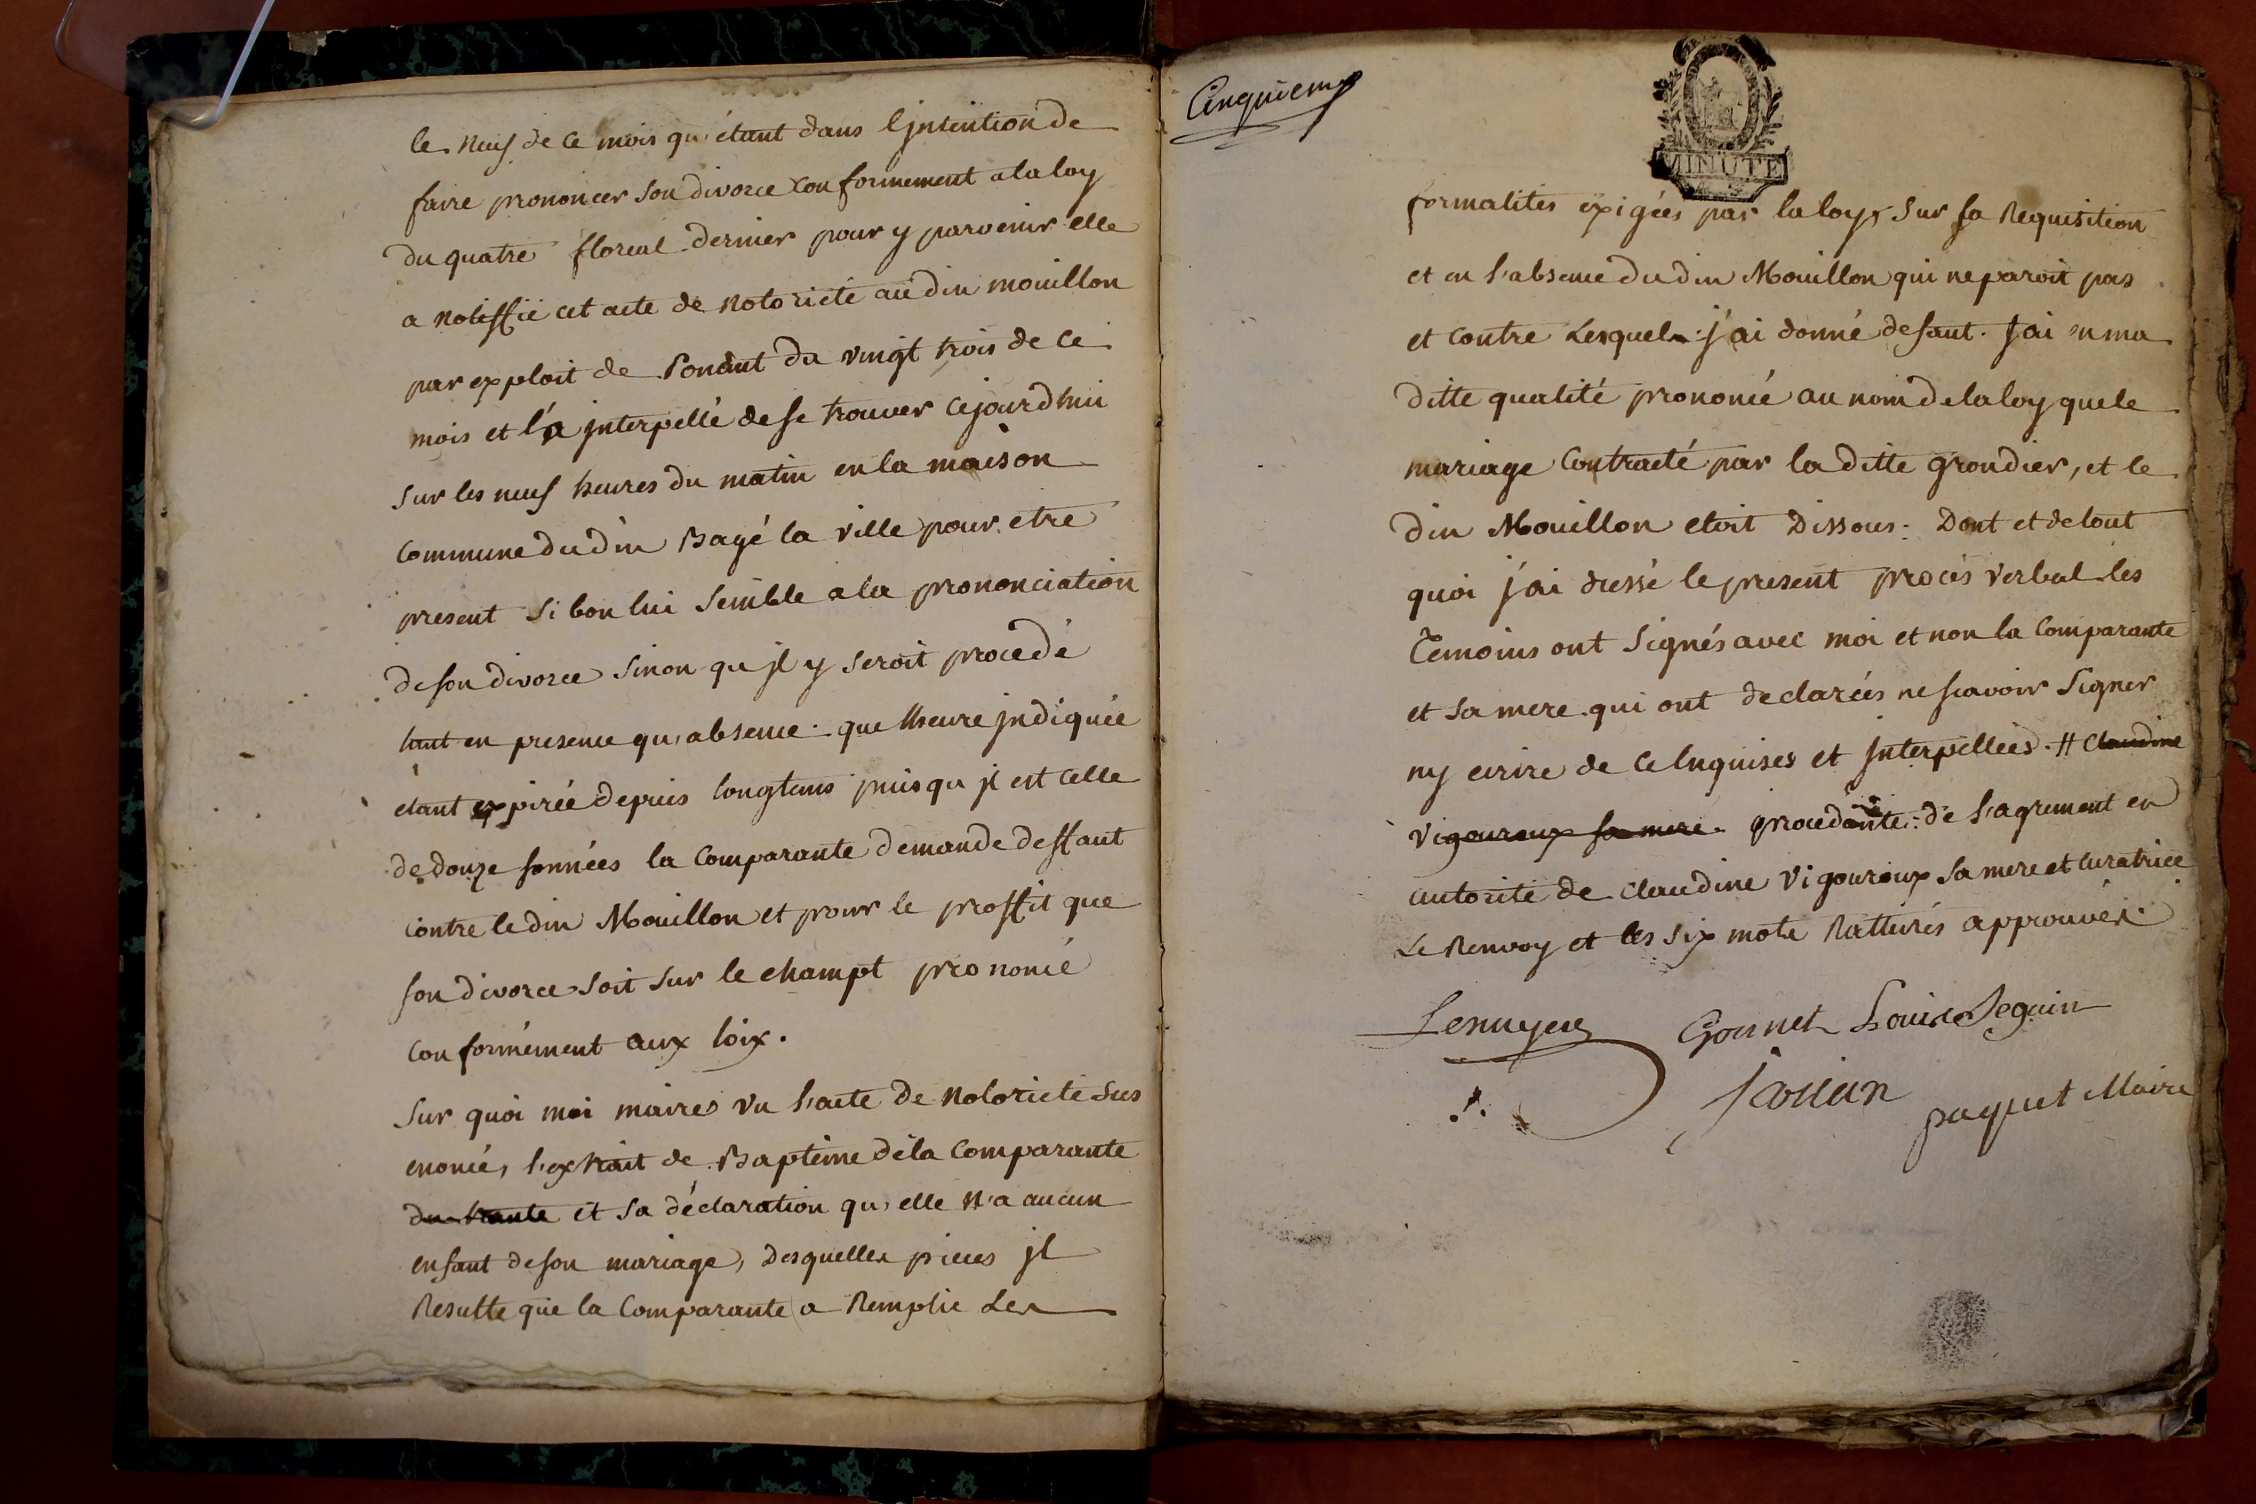 le neuf de ce mois qu'étant dans l'jntention de
faire prononcer son divorce conformement a la loy
du quatre floreal dernier pour y parvenir elle
a notiffié cet acte de notorieté au din mouillon
par exploit de Ponant du vingt trois de ce
mois et l'a jnterpellé de se trouver cejourdhui
sur les neuf heures du matin en la maison
commune du din Bagé la ville pour etre
present si bon lui semble a la prononciation
de son divorce sinon qu'jl y seroit procedé
tant en presence qu'absence. que lheure jndiquée
étant expirée depuis longtems puisqu'jl est celle
de douze sonnées la Comparante demande deffaut
contre le din Mouillon et pour le proffit que
son divorce soit sur le champt prononcé
conformément aux loix.
Sur quoi moi maire vu l'acte de notorieté sus
enoncé, l'extrait de Baptême de la Comparante
du trante et sa déclaration qu'elle n'a aucun
enfant de son mariage, desquelles pieces jl
Resulte que la Comparante a Remplie Les
Cinquieme
MINUTE
formalités éxigées par la loy, Sur sa Requisition
et en l'absence du din Mouillon qui ne paroit pas
et contre Lequel j'ai donné defaut. J'ai en ma
ditte qualité prononcé au nom de la loy que le
mariage Contracté par la ditte Grondier, et le
din Mouillon etoit Dissous. Dont et de tout
quoi j'ai dressé le present procés verbal les
Temoins ont Signés avec moi et non la Comparante
et sa mere qui ont declarées ne scavoir Signer
ny ecrire de ce Enquises et Jnterpellées. # Claudine
Vigouroux sa mere. procedante de l'agrement en
autorité de Claudine Vigouroux sa mere et curatrice
Le Renvoy et les six mots Ratturés approuvés.
Gonnet Louis Seguin
paquet Maire